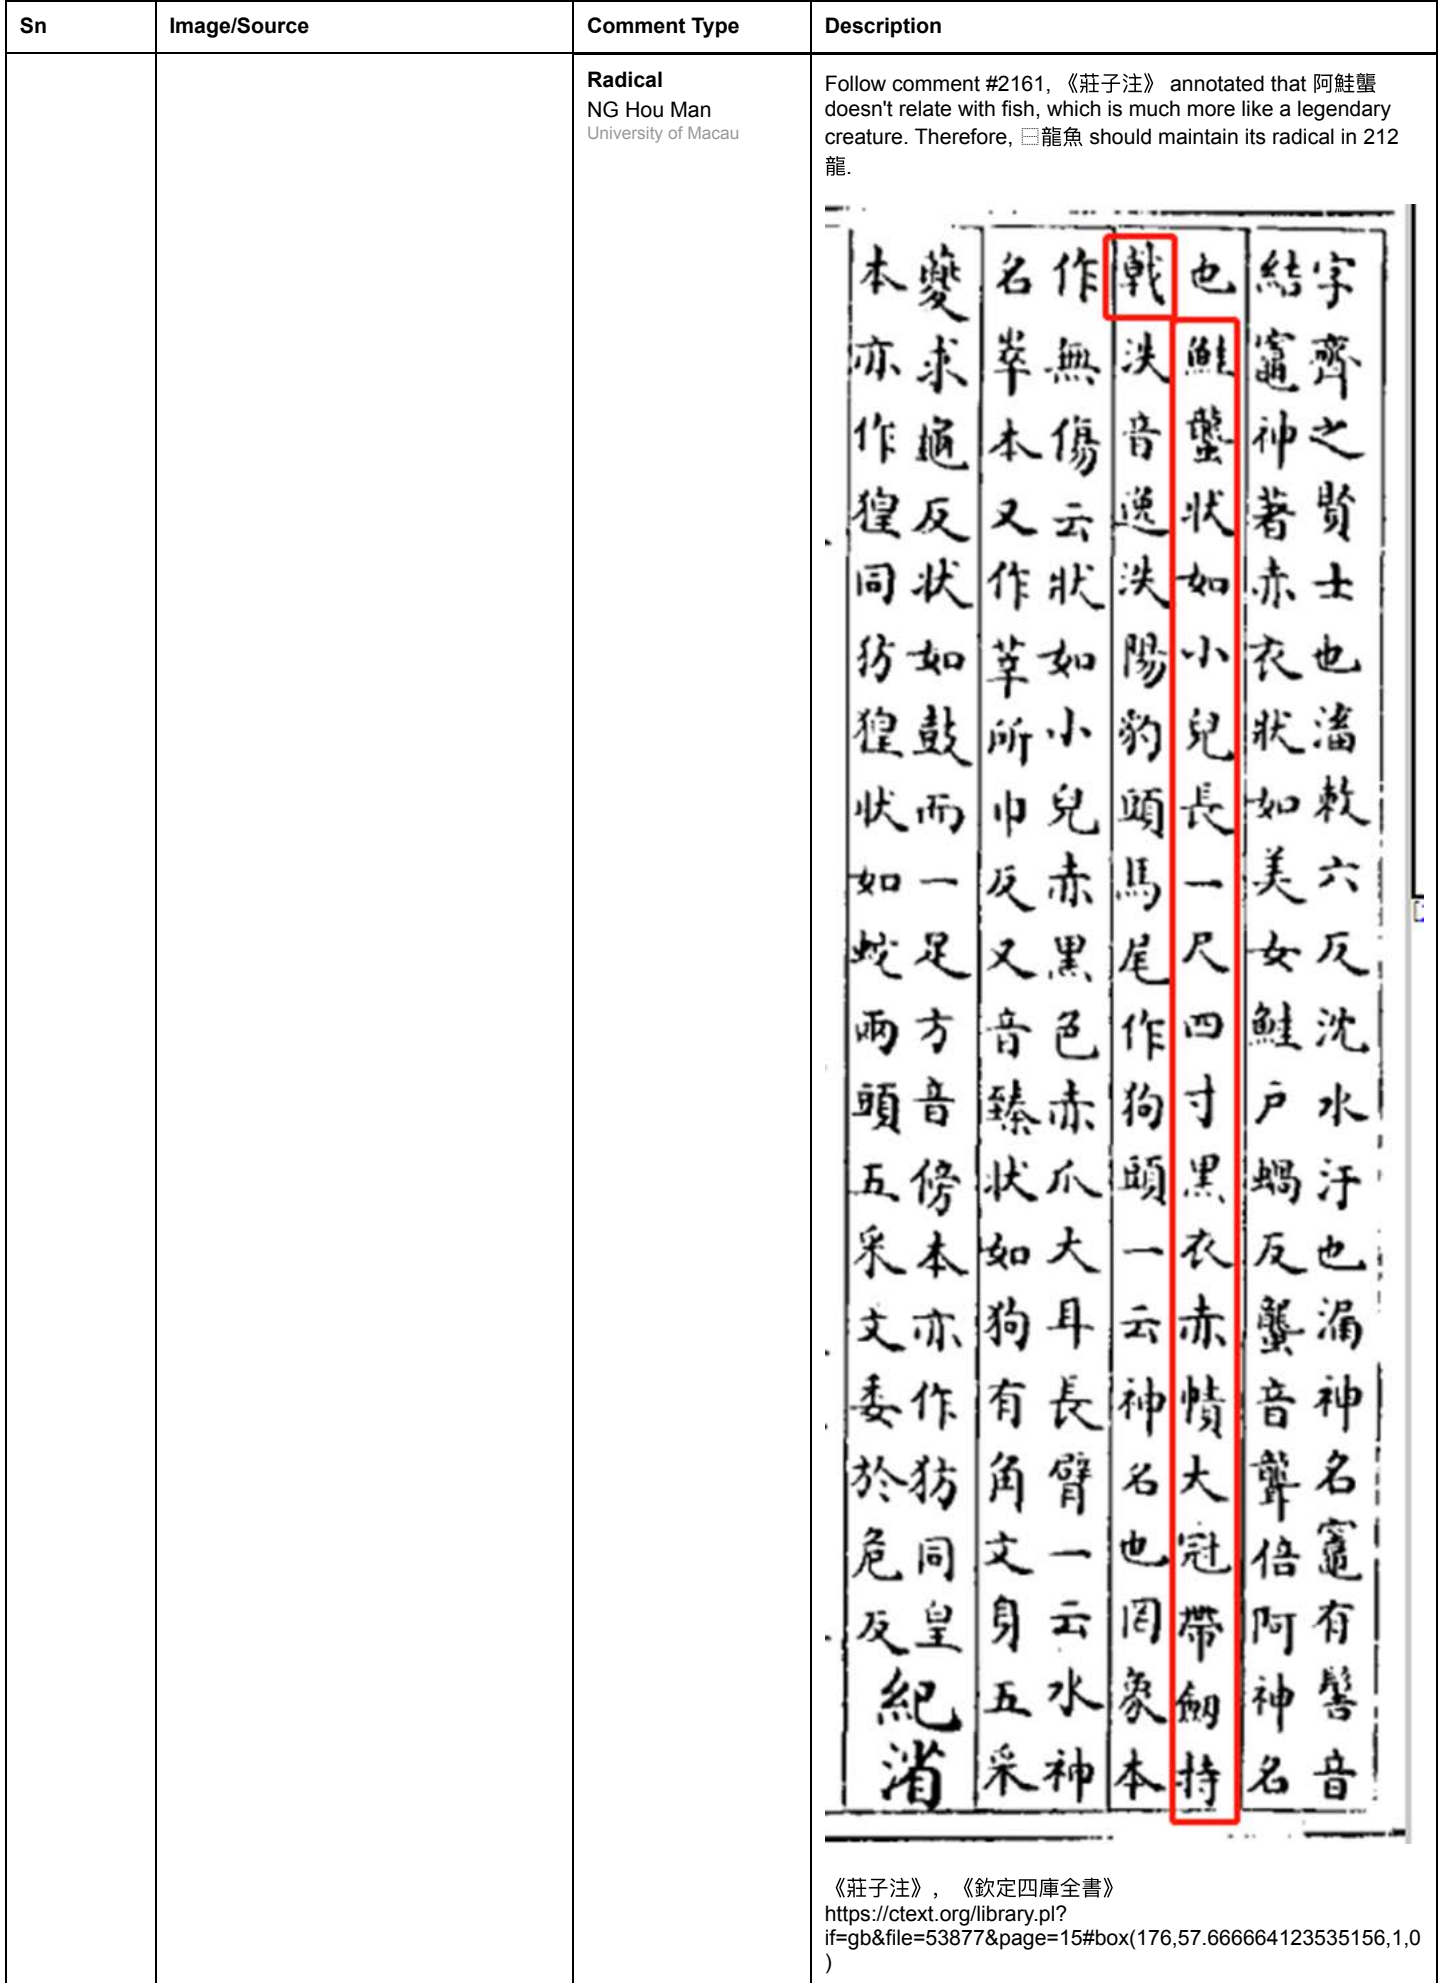 Sn Image/Source Comment Type Description
Radical
NG Hou Man
University of Macau
Follow comment #2161, 《莊子注》 annotated that 阿鮭蠪
doesn't relate with fish, which is much more like a legendary
creature. Therefore, ⿱龍魚 should maintain its radical in 212
龍.
字齊之賢士也潘敕六反沈水汙也漏神名竈有髻音
結竈神著赤衣狀如美女鮭戶蝸反蠪音聾倍阿神名
也鮭蠪状如小兒長一尺四寸黒衣赤幘大冠帶劔持
戟泆音逸泆陽豹頭馬尾作狗頭一云神名也罔象本
作無傷云狀如小兒赤黒色赤爪大耳長臂一云水神
名峷本又作莘所巾反又音臻状如狗有角文身五采
夔求龜反状如鼓而一足方音傍本亦作彷同皇
本亦作徨同彷徨状如蛇兩頭五采文委於危反
紀渻
《莊子注》, 《欽定四庫全書》
https://ctext.org/library.pl?
if=gb&file=53877&page=15#box(176,57.666664123535156,1,0
)